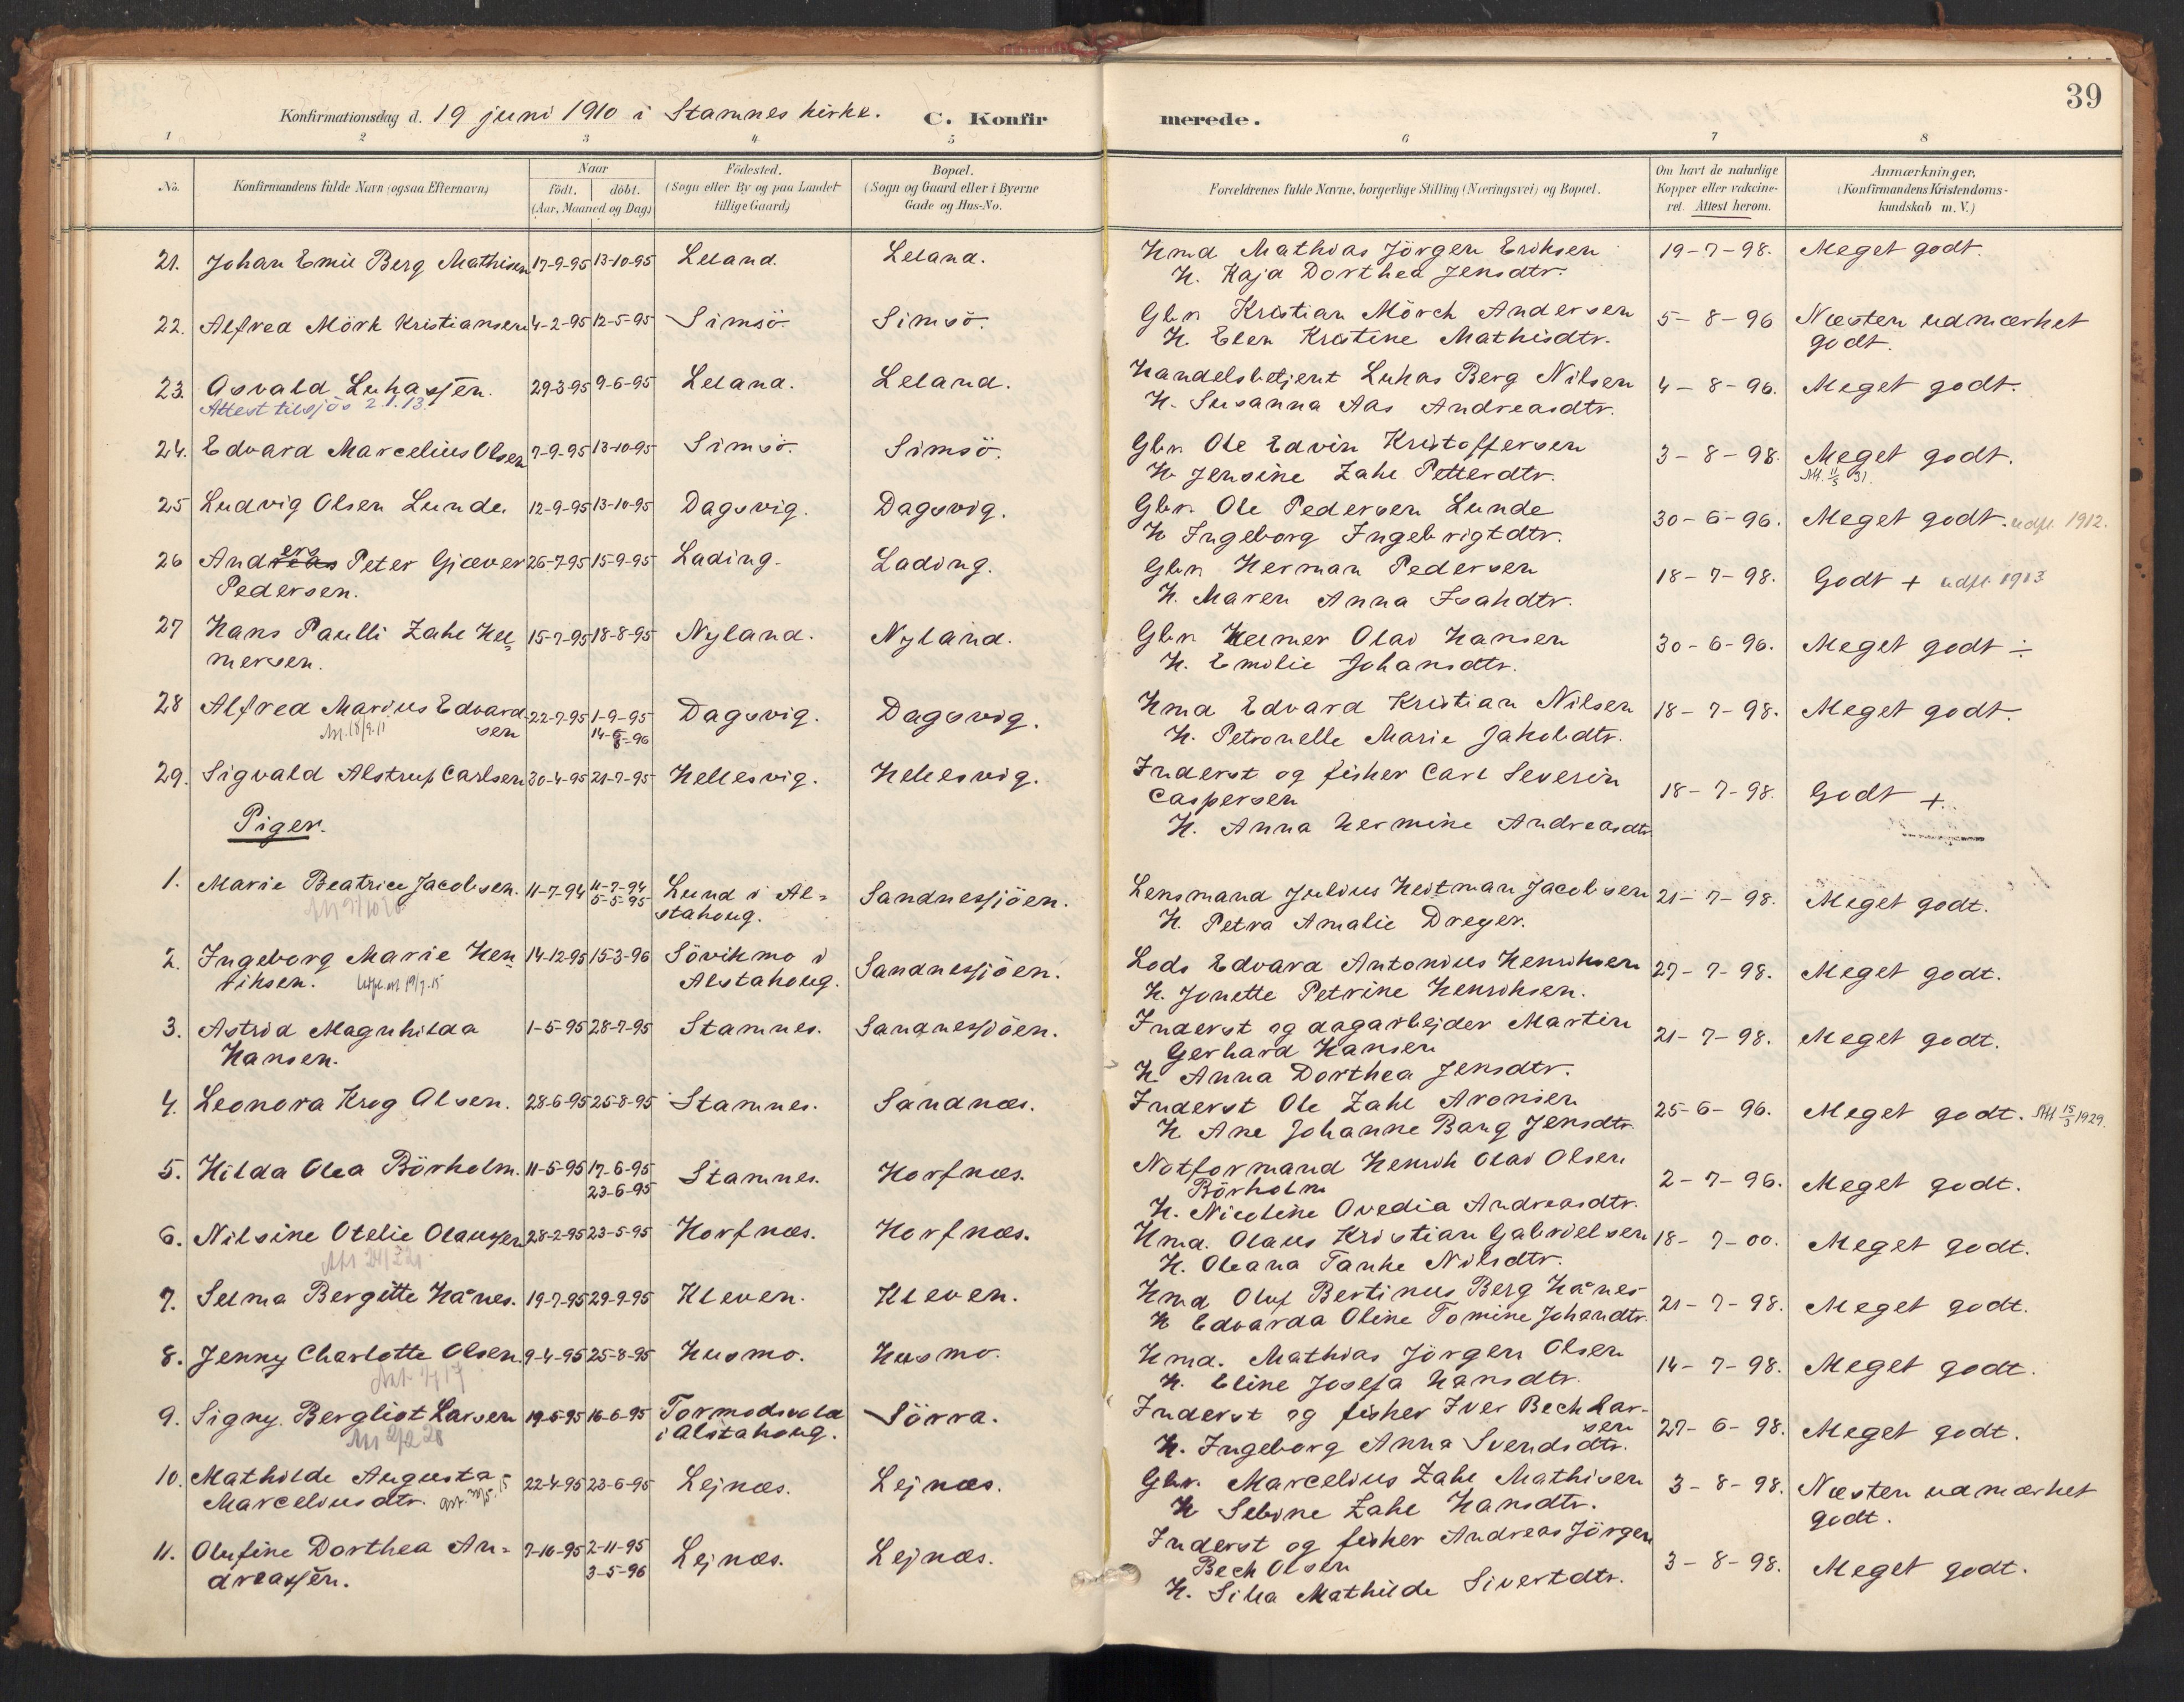 Konfirmationsdag d. 19 juni 1910 i Stamnes kirke. C. Konfirmerede. 39
1 2 3 4 5 6 7 8
No. Konfirmandens fulde Navn (ogsaa Efternavn) Naar födt. döbt. (Aar, Maaned og Dag) Födested. (Sogn eller By og paa Landet tillige Gaard) Bopæl. (Sogn og Gaard eller i Byerne Gade og Hus-No. Forældrenes fulde Navne, borgerlige Stilling (Næringsvei) og Bopæl. Om havt de naturlige Kopper eller vakcineret. Attest herom. Anmærkninger. (Konfirmandens Kristendomskundskab m. V.)
21. Johan Emil Berg Mathisen 17-9-95 13-10-95 Leland. Leland. Hmd Mathias Jörgen Eriksen 19-7-98. Meget godt.
H. Kaja Dorthea Jensdtr.
22. Alfred Mörk Kristiansen 4-2-95 12-5-95 Simsö. Simsö. Gbr. Kristian Mörch Andersen 5-8-96 Næsten udmærket
H. Elen Kristine Mathisdtr. godt.
23. Osvald Lukassen. 29-3-95 9-6-95 Leland. Leland. Handelsbetjent Lukas Berg Nilsen 4-8-96. Meget godt.
Attest tilsjös 2.1.13. H. Susanna Aas Andreasdtr.
24. Edvard Marcelius Olsen 7-9-95 13-10-95 Simsö. Simsö. Gbr. Ole Edvin Kristoffersen 3-8-98. Meget godt.
H. Jensine Zahl Petterdtr. Att. 11/5 31.
25 Ludvig Olsen Lunde 12-9-95 13-10-95 Dagsvig. Dagsvig. Gbr. Ole Pedersen Lunde 30-6-96. Meget godt. udfl. 1912.
H Ingeborg Ingebrigtdtr.
26 Andreas ers Peter Gjæver 26-7-95 15-9-95 Lading. Lading. Gbr. Herman Pedersen 18-7-98. Godt + udfl. 1913
Pedersen. H. Maren Anna Isakdtr.
27 Hans Paulli Zahl Hel= 15-7-95 18-8-95 Nyland. Nyland. Gbr. Helmer Olai Hansen 30-6-96. Meget godt ÷
mersen. H. Emilie Johansdtr.
28 Alfred Marius Edvard- 22-7-95 1-9-95 Dagsvig. Dagsvig. Hmd Edvard Kristian Nilsen 18-7-98. Meget godt.
sen 18/9.11 H. Petronelle Marie Jakobdtr.
29. Sigvald Alstrup Carlsen 30-4-95 21-7-95 Hellesvig. Hellesvig. Inderst og fisker Carl Severin 18-7-98. Godt +.
Caspersen
H. Anna Hermine Andreasdtr
Piger.
1. Marie Beatrice Jacobsen. 11-7-94 11-7-94 Lund i Al= Sandnessjöen. Lensmand Julius Heitman Jacobsen 21-7-98. Meget godt.
5-5-95 stahoug. H. Petra Amalie Dreyer.
2. Ingeborg Marie Hen= 14-12-95 15-3-96 Sövikmo i Sandnessjöen. Lods Edvard Antonius Henriksen 27-7-98. Meget godt.
riksen. 19/7.15 Alstahoug. H. Jonette Petrine Henriksen.
3. Astrid Magnhilda 1-5-95 28-7-95 Stamnes. Sandnessjöen. Inderst og dagarbejder Martin 21-7-98. Meget godt.
Hansen. Gerhard Hansen
H Anna Dorthea Jensdtr.
4. Leonora Krog Olsen. 28-6-95 25-8-95 Stamnes. Sandnæs. Inderst Ole Zahl Aronsen 25-6-96. Meget godt. Att 15/3 1929.
H Ane Johanne Bang Jensdtr.
5. Hilda Olea Börholm. 11-5-95 17-6-95 Stamnes. Horfnæs. Notformand Henrik Olai Olsen 2-7-96. Meget godt.
23-6-95 Börholm
H. Nicoline Ovedia Andreasdtr.
6. Nilsine Otelie Olaussen 28-2-95 23-5-95 Horfnæs. Horfnæs. Hmd. Olaus Kristian Gabrielsen 18-7-00. Meget godt.
H. Oleana Tanke Nilsdtr.
7. Selma Bergitte Hånes. 19-7-95 29-9-95 Kleven. Kleven. Hmd Oluf Bertinus Berg Hånes 21-7-98. Meget godt.
H Edvarda Oline Tomine Johandtr.
8. Jenny Charlotte Olsen. 9-4-95 25-8-95 Husmo. Husmo. Hmd. Mathias Jörgen Olsen 14-7-98. Meget godt.
H. Eline Josefa Hansdtr.
9. Signy Bergliot Larsen 19-5-95 16-6-95 Tormodsvold Sörra. Inderst og fisker Iver Bech Lar- 27-6-98. Meget godt.
i Alstahoug. sen
H. Ingeborg Anna Svendsdtr.
10. Mathilde Augusta 22-4-95 23-6-95 Lejnæs. Lejnæs. Gbr. Marcelius Zahl Mathisen 3-8-98. Næsten udmærket
Marceliusdtr. H Sebine Zahl Hansdtr. godt.
11. Olufine Dorthea An= 7-10-95 2-11-95 Lejnæs. Lejnæs. Inderst og fisker Andreas Jörgen 3-8-98. Meget godt.
dreassen. 3-5-96 Bech Olsen
H. Silla Mathilde Sivertdtr.